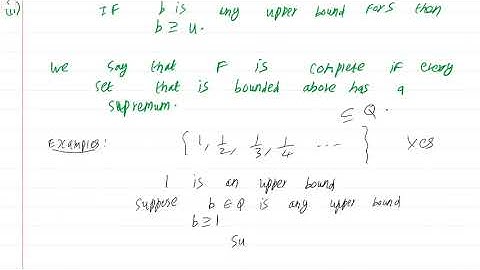 (ii) IF b is any upper bound for S then
b ≥ u.
We say that F is complete if every
set that is bounded above has a
supremum.
⊆ Q.
Examples: {1, 1/2, 1/3, 1/4 ... } Yes
1 is an upper bound
suppose b ∈ Q is any upper bound
b ≥ 1
Su